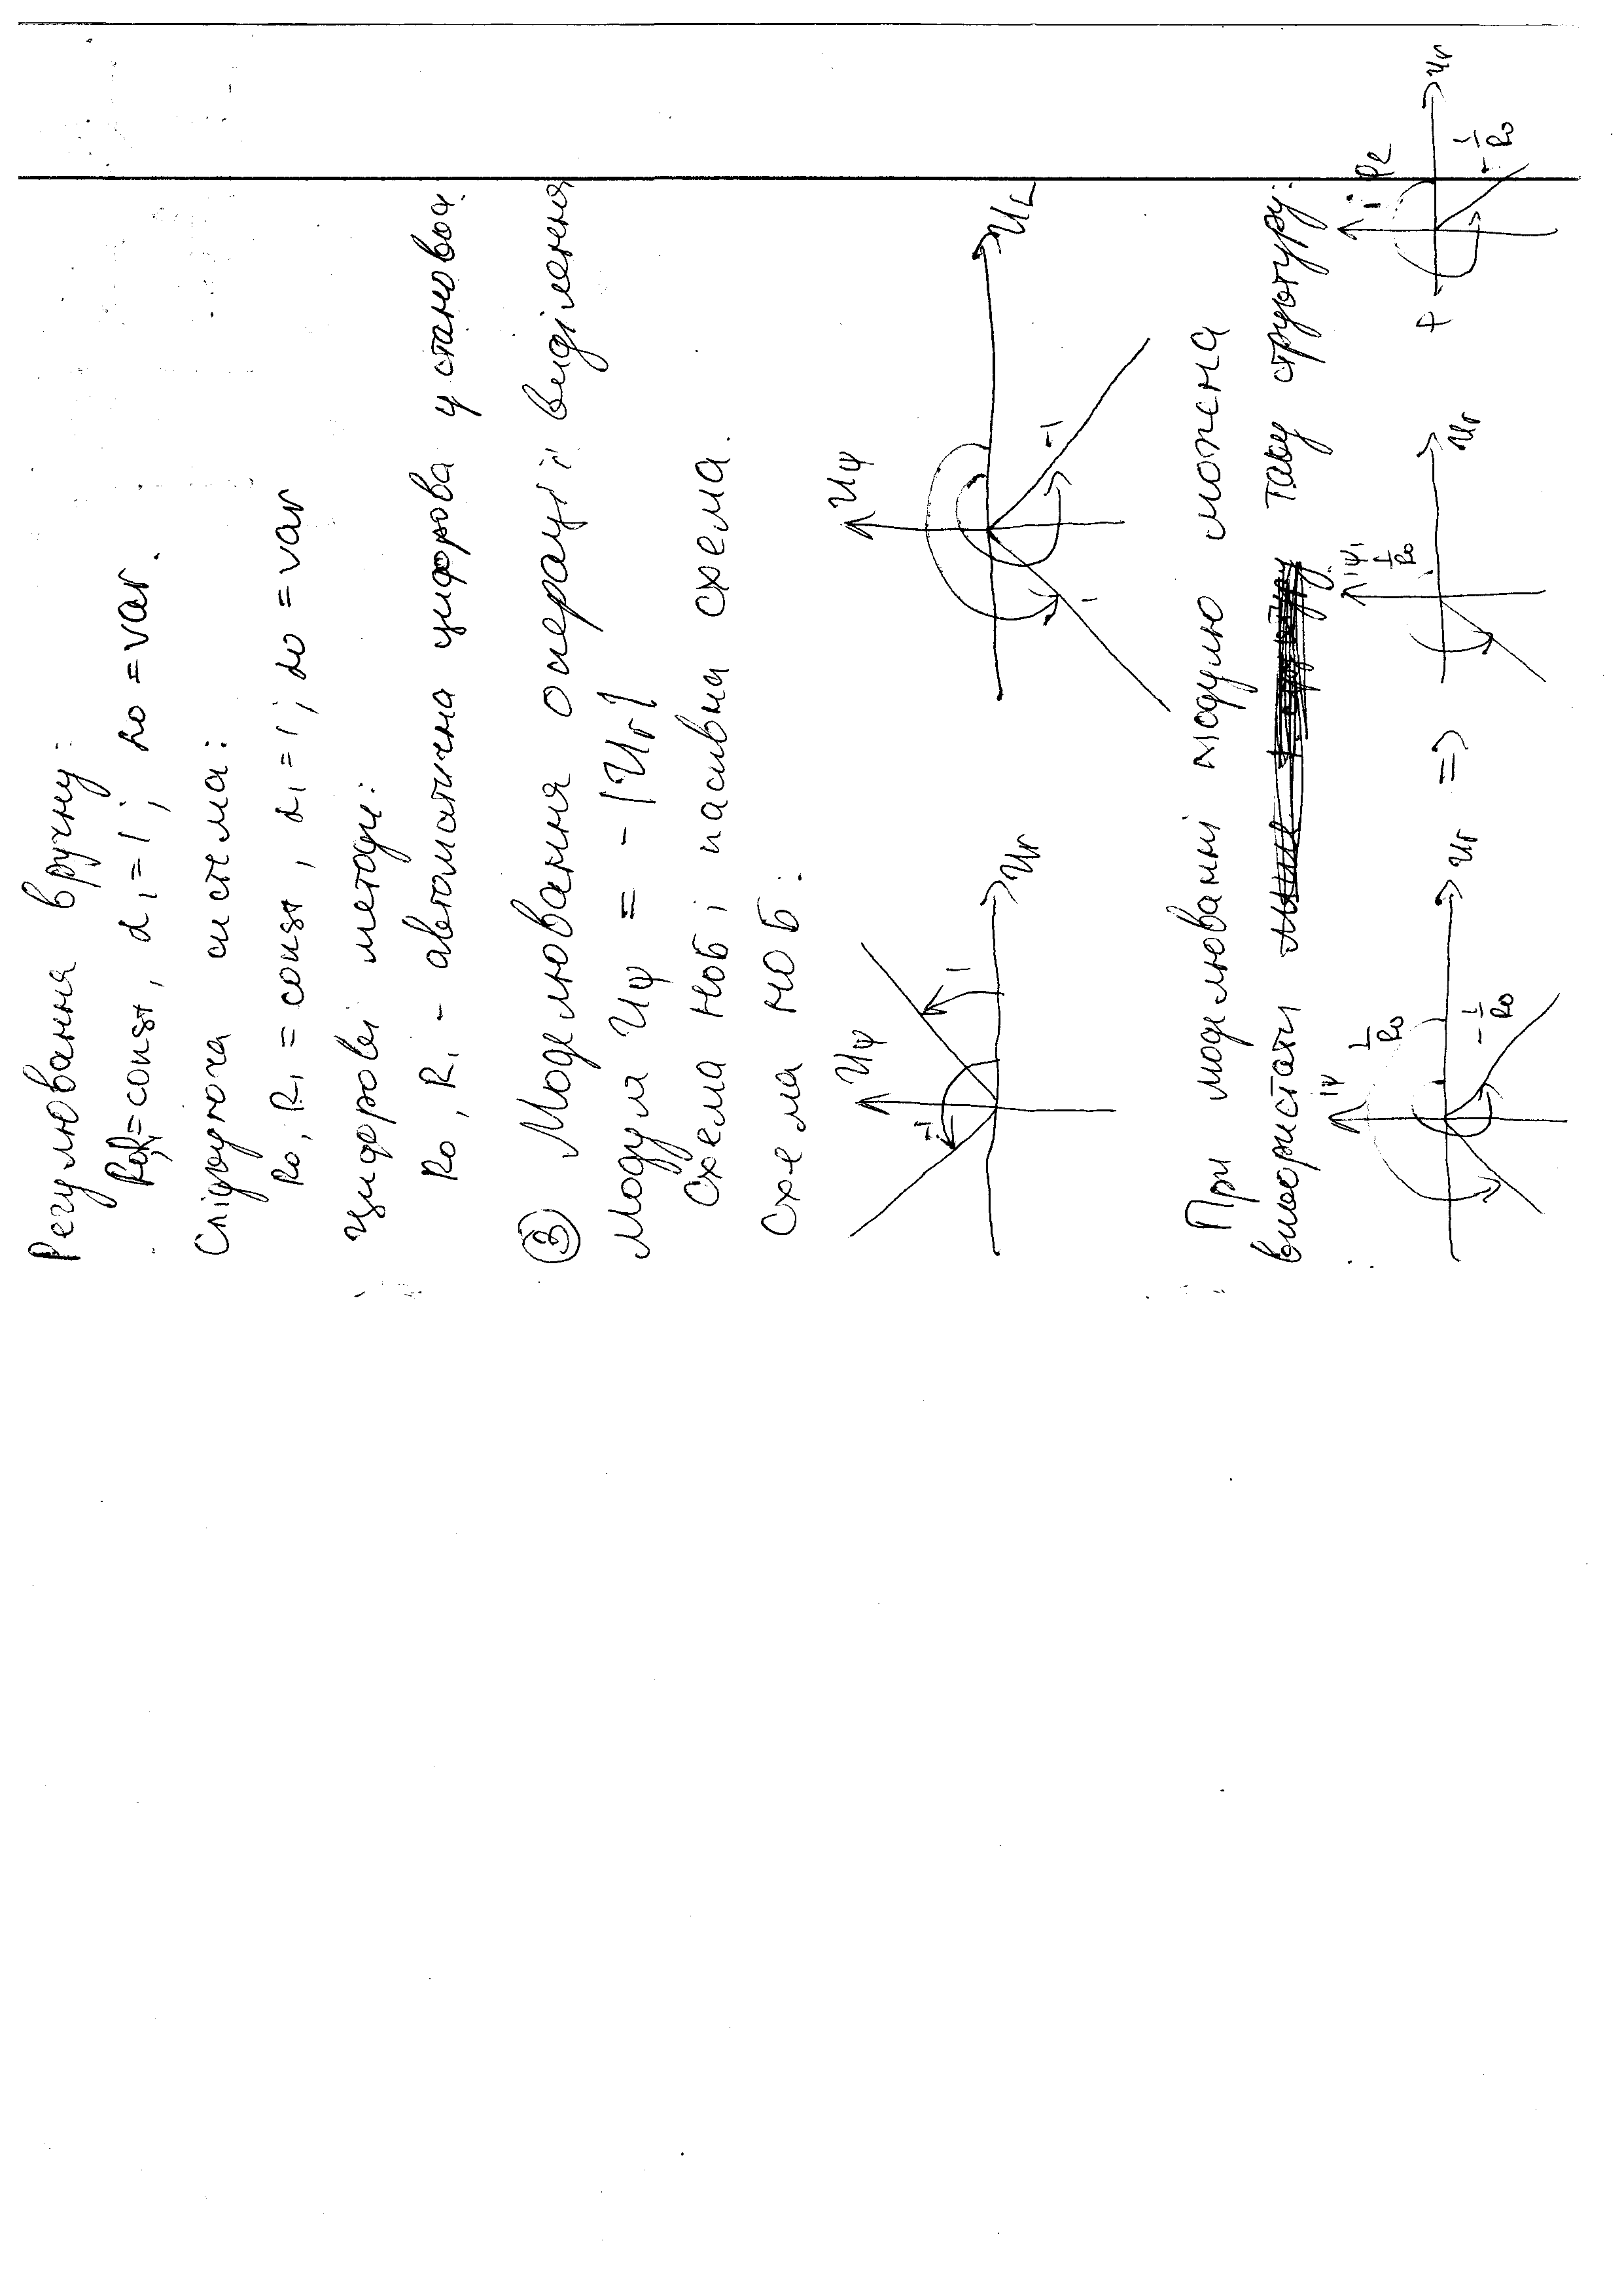 Регулювання вручну:
R₀,R₁=const, α₁=1; α₀=var.
Слідкуюча система:
R₀, R₁=const, α₁=1; α₀=var
Цифрові методи:
R₀, R₁ - автоматична цифрова установка.
③ Моделювання операції виділення
модуля U_ψ = -|U_г|
Схема НОБ і пасивна схема.
Схема НОБ:
U_ψ
-1
1
U_г
U_ψ
-1
1
U_г
При моделюванні модулю можна
використати таку структуру:
i_ψ
1/R₀
-1/R₀
U_г
=>
i_ψ1
1/R₀
U_г
+
-1/R₀
U_г